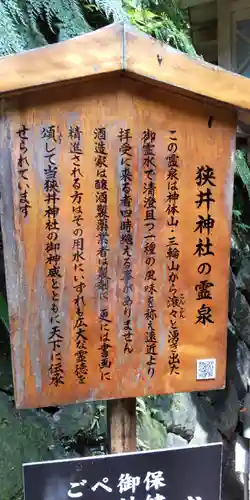 狭井神社の霊泉
この霊泉は神体山・三輪山から滾々と湧き出た
御霊水で清澄且つ一種の風味を称え遠近より
拝受に来る者四時絶える事がありません
酒造家は醸酒製薬業者は製剤に更には書画に
精進される方はその用水にいずれも広大な霊徳を
頌して当狭井神社の御神威とともに天下に伝承
せられています